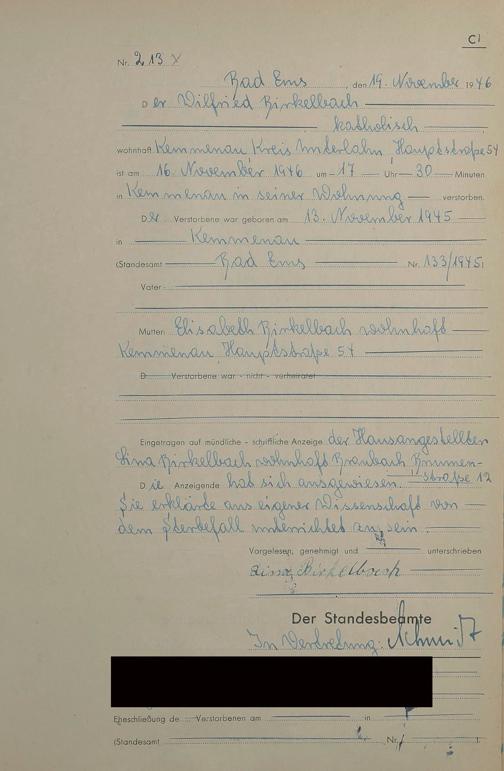 C1
Nr. 213
Bad Ems, den 19. November 1946
Der Wilfried Birkelbach
katholisch
wohnhaft Kemmenau Kreis Unterlahn, Hauptstraße 54
ist am 16. November 1946 um 17 Uhr 30 Minuten
in Kemmenau in seiner Wohnung verstorben.
Der Verstorbene war geboren am 13. November 1945
in Kemmenau
(Standesamt Bad Ems Nr. 133/1945)
Vater:
Mutter: Elisabeth Birkelbach wohnhaft
Kemmenau, Hauptstraße 54
D Verstorbene war - nicht - verheiratet
Eingetragen auf mündliche - schriftliche Anzeige der Hausangestellten
Lina Birkelbach wohnhaft Braubach Brunnen-
straße 12
Die Anzeigende hat sich ausgewiesen.
Sie erklärte aus eigener Wissenschaft von
dem Sterbefall unterrichtet zu sein.
Vorgelesen, genehmigt und unterschrieben
Lina Birkelbach
Der Standesbeamte
In Vertretung: Schmidt
Eheschließung de Verstorbenen am in
(Standesamt Nr. ).